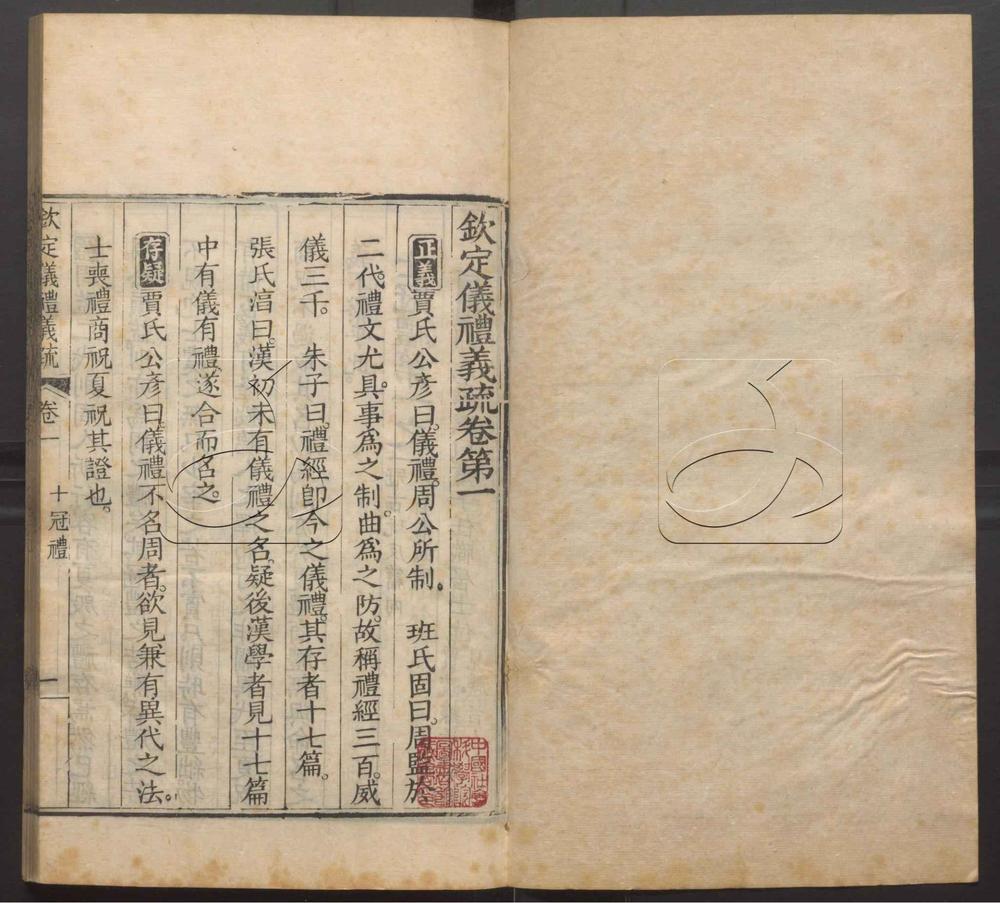 欽定儀禮義疏卷第一
正義賈氏公彥曰。儀禮。周公所制。　班氏固曰。周監於
二代。禮文尤具。事為之制。曲為之防。故稱禮經三百。威
儀三千。　朱子曰。禮經卽今之儀禮。其存者十七篇。
張氏淳曰。漢初未有儀禮之名。疑後漢學者見十七篇
中有儀有禮。遂合而名之。
存疑賈氏公彥曰。儀禮不名周者。欲見兼有異代之法。
士喪禮商祝夏祝其證也。
欽定儀禮義疏　卷一　士冠禮　一